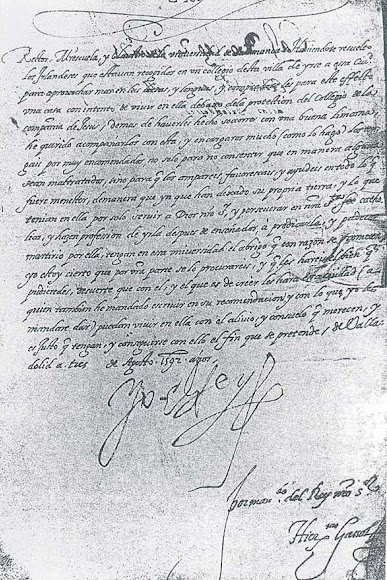 Retor, Maestrescuela, y Claustro de la universidad de Salamanca. Haviendose resuelto
los Irlandeses que estavan recogidos en un collegio dessa villa de yrse a essa Ciud
para aprovechar mas en las letras, y lenguas, y para este effeto
una casa con intento de vivir en ella debaxo dela protection del Collegio de la
compañia de Jesus, demas de haverles hecho socorrer con una buena limosna,
he querido acompañarlos con esta, y encargaros mucho (como lo hago) los ten
gais por muy encomendados, no solo para no consentir que en manera alguna
sean maltratados, sino para q̃ los ampareis, favorescais, y ayudeis en todo lo q̃
fuere menester, demanera que ya que han dexado su propria tierra, y lo que
tenian en ella por solo servir a Dios nr̃o S.r, y perseverar en nr̃a fee catho
lica, y hazen profesion de yrla despues de enseñados a predicalla, y padecer
martirio por ella, tengan en essa universidad el abrigo q̃ con razon se prometen
yo estoy cierto que por vr̃a parte se lo procurareis, y q̃ les hareis el bien q̃
pudieredes, de suerte que con el, y el que es de creer les hara la (a
quien tambien he mandado escrivir en su recomendacion, y con lo que yo les
mandare dar) puedan vivir en ella con el alivio, y consuelo q̃ merecen, y
es justo q̃ tengan, y conseguirse con ello el fin que se pretende, de Valla
dolid a tres de Agosto 1592 años
Yo el Rey
por man.do del Rey nr̃o s.r
Hier.mo